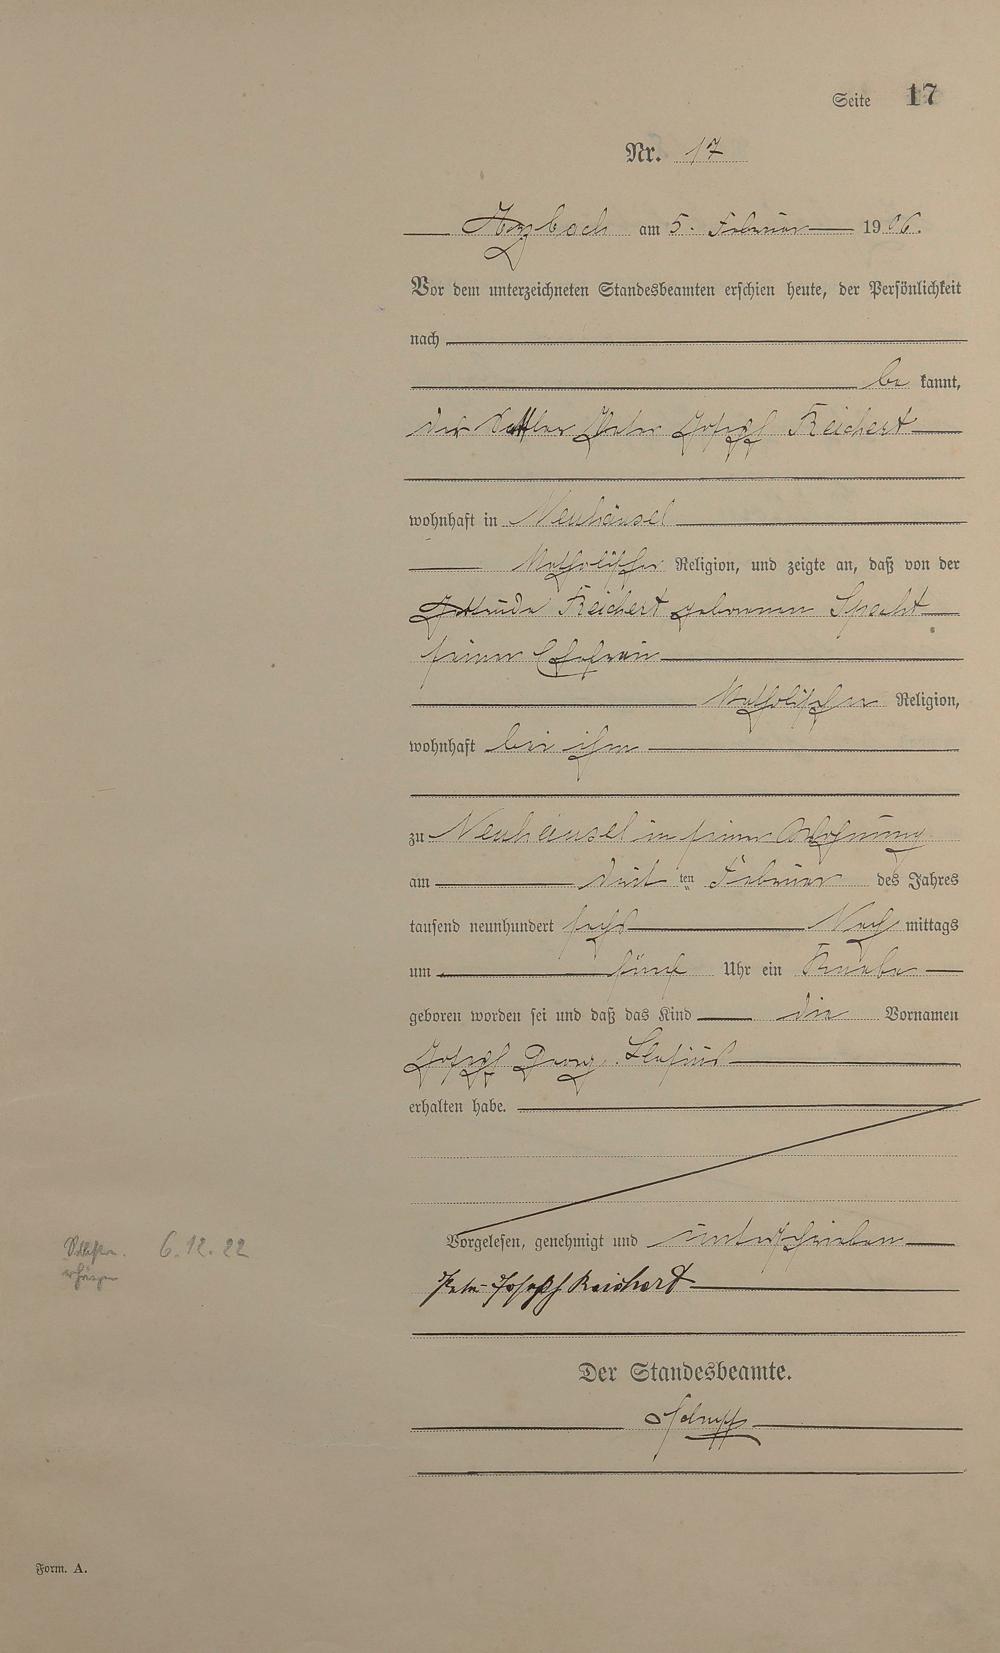 Seite 17
Nr. 17
Arzbach am 5. Februar 1906.
Vor dem unterzeichneten Standesbeamten erschien heute, der Persönlichkeit
nach
be kannt,
der Peter Joseph Reichert
wohnhaft in Neuhäusel
katholischer Religion, und zeigte an, daß von der
Gertrude Reichert geborenen Specht
seiner Ehefrau
katholischer Religion,
wohnhaft bei ihm
zu Neuhäusel in seiner Wohnung
am drit ten Februar des Jahres
tausend neunhundert sechs Nach mittags
um fünf Uhr ein Knabe
geboren worden sei und daß das Kind die Vornamen
Joseph Georg
erhalten habe.
Vorgelesen, genehmigt und unterschrieben
6.12.22
Peter Joseph Reichert
Der Standesbeamte.
Form. A.